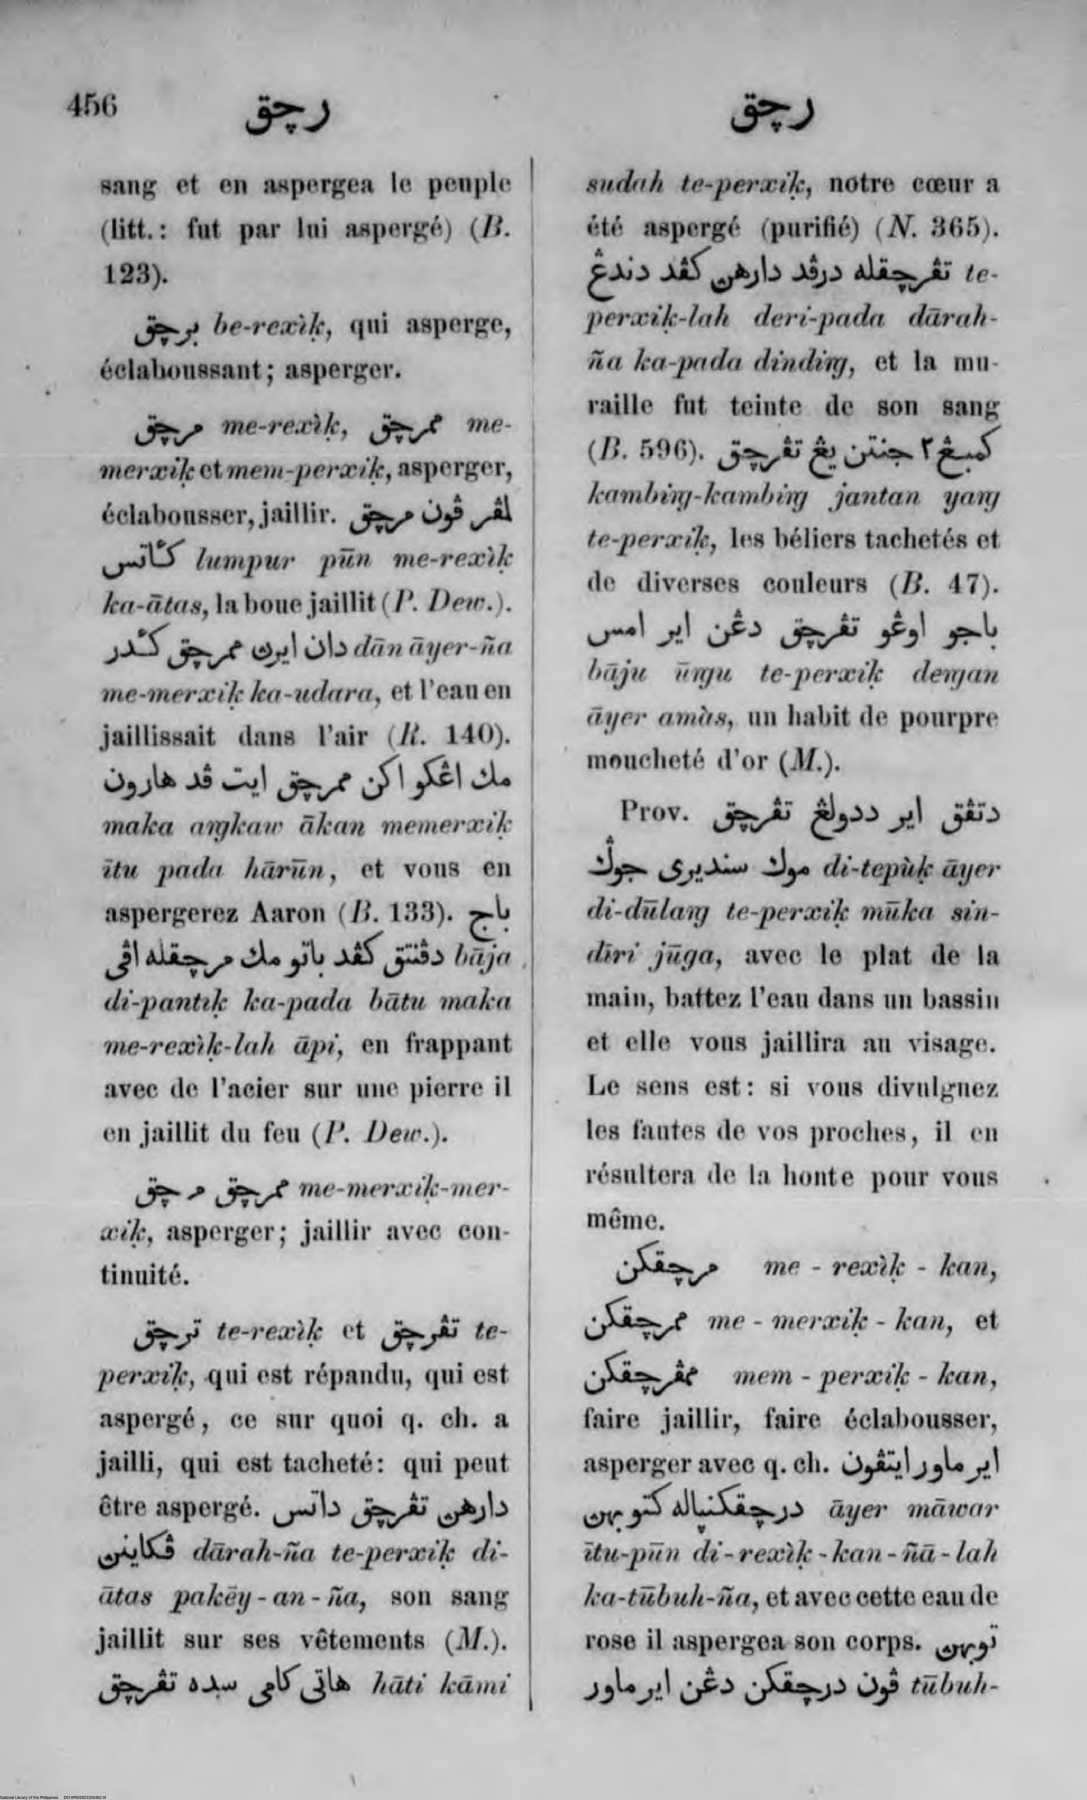 456
رچق
رچق
sang et en aspergea le peuple
(litt.: fut par lui aspergé) (B.
123).
برچق be-rexìḳ, qui asperge,
éclaboussant; asperger.
مرچق me-rexìḳ, ممرچق me-
merxiḳ et mem-perxiḳ, asperger,
éclabousser, jaillir. لمڤر ڤون مرچق
كأتس lumpur pūn me-rexìḳ
ka-ātas, la boue jaillit (P. Dew.).
دان ايرن ممرچق كأدر dān āyer-ña
me-merxiḳ ka-udara, et l'eau en
jaillissait dans l'air (R. 140).
مك اڠكو اكن ممرچق ايت ڤد هارون
maka angkaw ākan memerxiḳ
ītu pada hārūn, et vous en
aspergerez Aaron (B. 133). باج
دڤنتق كڤد باتو مك مرچقله اڤي bāja
di-pantiḳ ka-pada bātu maka
me-rexìḳ-lah āpi, en frappant
avec de l'acier sur une pierre il
en jaillit du feu (P. Dew.).
ممرچق مرچق me-merxiḳ-mer-
xiḳ, asperger; jaillir avec con-
tinuité.
ترچق te-rexìḳ et تڤرچق te-
perxiḳ, qui est répandu, qui est
aspergé, ce sur quoi q. ch. a
jailli, qui est tacheté: qui peut
être aspergé. دارهن تڤرچق داتس
ڤكاينن dārah-ña te-perxiḳ di-
ātas pakēy-an-ña, son sang
jaillit sur ses vêtements (M.).
هاتي كامي سده تڤرچق hāti kāmi
sudah te-perxiḳ, notre cœur a
été aspergé (purifié) (N. 365).
تڤرچقله درڤد دارهن كڤد دندڠ te-
perxiḳ-lah deri-pada dārah-
ña ka-pada dinding, et la mu-
raille fut teinte de son sang
(B. 596). كمبڠ٢ جنتن يڠ تڤرچق
kambing-kambing jantan yang
te-perxiḳ, les béliers tachetés et
de diverses couleurs (B. 47).
باجو اوڠو تڤرچق دڠن اير امس
bāju ūngu te-perxiḳ dengan
āyer amàs, un habit de pourpre
moucheté d'or (M.).
Prov. دتڤق اير ددولڠ تڤرچق
موك سنديري جوݢ di-tepùḳ āyer
di-dūlang te-perxiḳ mūka sin-
dīri jūga, avec le plat de la
main, battez l'eau dans un bassin
et elle vous jaillira au visage.
Le sens est: si vous divulguez
les fautes de vos proches, il en
résultera de la honte pour vous
même.
مرچقكن me-rexìḳ-kan,
ممرچقكن me-merxiḳ-kan, et
ممڤرچقكن mem-perxiḳ-kan,
faire jaillir, faire éclabousser,
asperger avec q. ch. اير ماور ايتڤون
درچقكنياله كتوبهن āyer māwar
ītu-pūn di-rexìḳ-kan-ñā-lah
ka-tūbuh-ña, et avec cette eau de
rose il aspergea son corps. توبهن
ڤون درچقكن دڠن اير ماور tūbuh-